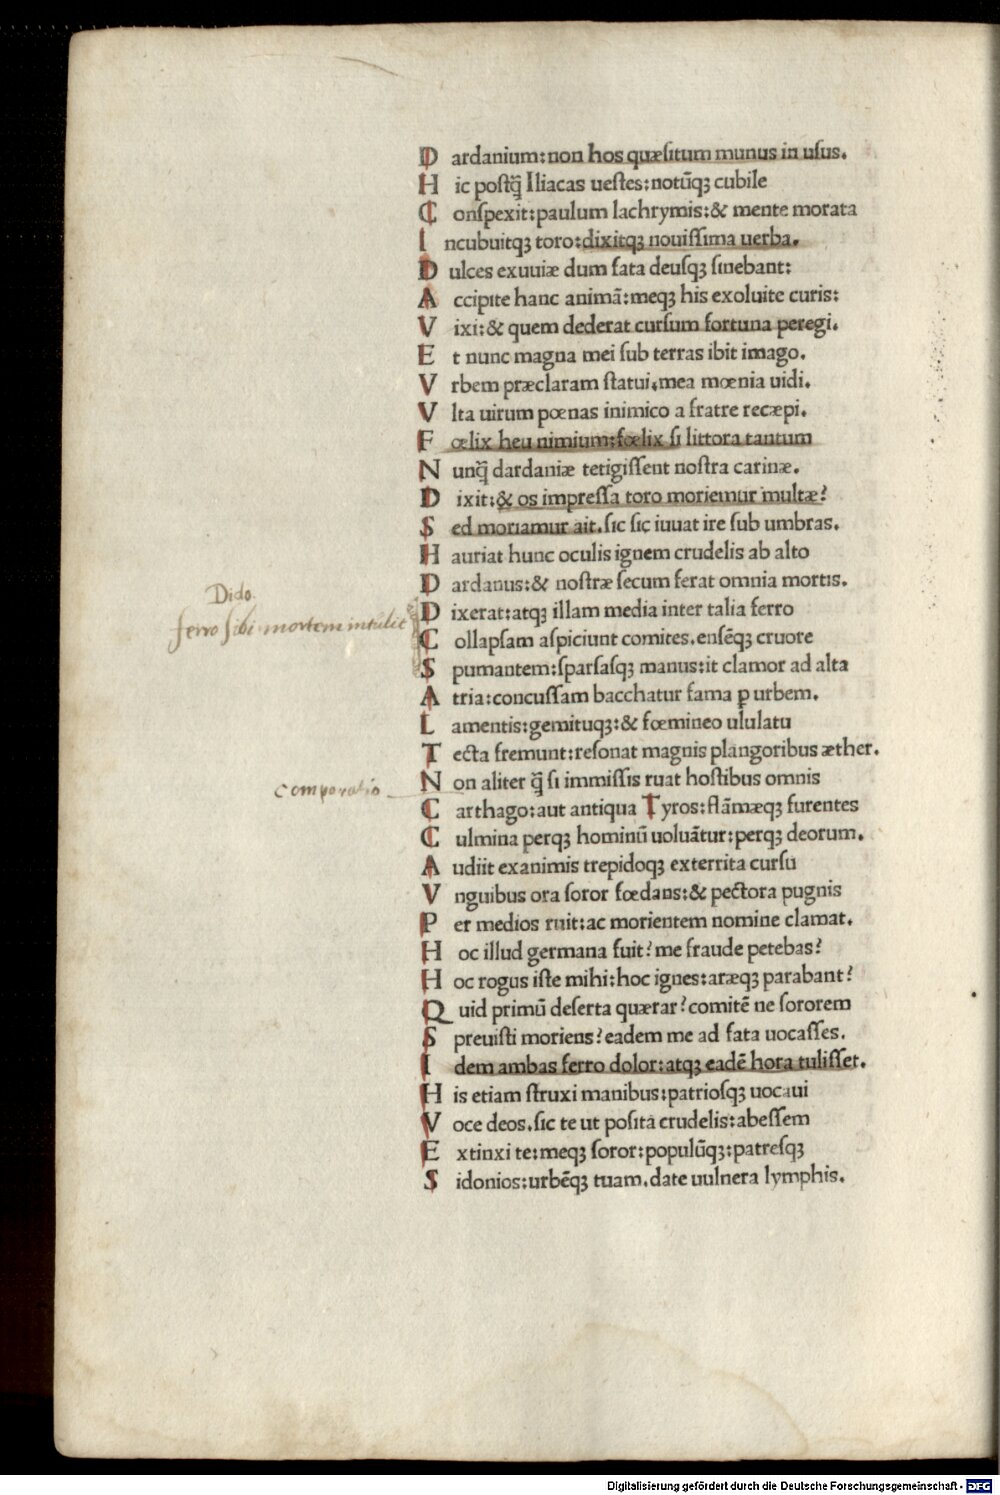 Dardanium: non hos quæsitum munus in usus.
Hic postq̃ Iliacas uestes: notũqꝫ cubile
Conspexit: paulum lachrymis: & mente morata
Incubuitqꝫ toro: dixitqꝫ nouissima uerba.
Dulces exuuiæ dum fata deusqꝫ sinebant:
Accipite hanc animã: meqꝫ his exoluite curis:
Vixi: & quem dederat cursum fortuna peregi.
Et nunc magna mei sub terras ibit imago.
Vrbem præclaram statui, mea mœnia uidi.
Vlta uirum pœnas inimico a fratre recæpi.
Fœlix heu nimium: fœlix si littora tantum
Nunq̃ dardaniæ tetigissent nostra carinæ.
Dixit: & os impressa toro moriemur multæ?
Sed moriamur ait. sic sic iuuat ire sub umbras.
Hauriat hunc oculis ignem crudelis ab alto
Dardanus: & nostræ secum ferat omnia mortis.
Dido.
ferro sibi mortem intulit
Dixerat: atqꝫ illam media inter talia ferro
Collapsam aspiciunt comites. ensẽqꝫ cruore
Spumantem: sparsasqꝫ manus: it clamor ad alta
Atria: concussam bacchatur fama ꝑ urbem.
Lamentis: gemituqꝫ: & fœmineo ululatu
Tecta fremunt: resonat magnis plangoribus æther.
comparatio
Non aliter q̃ si immissis ruat hostibus omnis
Carthago: aut antiqua Tyros: flãmæqꝫ furentes
Culmina perqꝫ hominũ uoluãtur: perqꝫ deorum.
Audiit exanimis trepidoqꝫ exterrita cursu
Vnguibus ora soror fœdans: & pectora pugnis
Per medios ruit: ac morientem nomine clamat.
Hoc illud germana fuit? me fraude petebas?
Hoc rogus iste mihi: hoc ignes: aræqꝫ parabant?
Quid primũ deserta quærar? comitẽ ne sororem
Spreuisti moriens? eadem me ad fata uocasses.
Idem ambas ferro dolor: atqꝫ eadẽ hora tulisset.
His etiam struxi manibus: patriosqꝫ uocaui
Voce deos. sic te ut posita crudelis: abessem
Extinxi te: meqꝫ soror: populũqꝫ: patresqꝫ
Sidonios: urbẽqꝫ tuam. date uulnera lymphis.
Digitalisierung gefördert durch die Deutsche Forschungsgemeinschaft - DFG